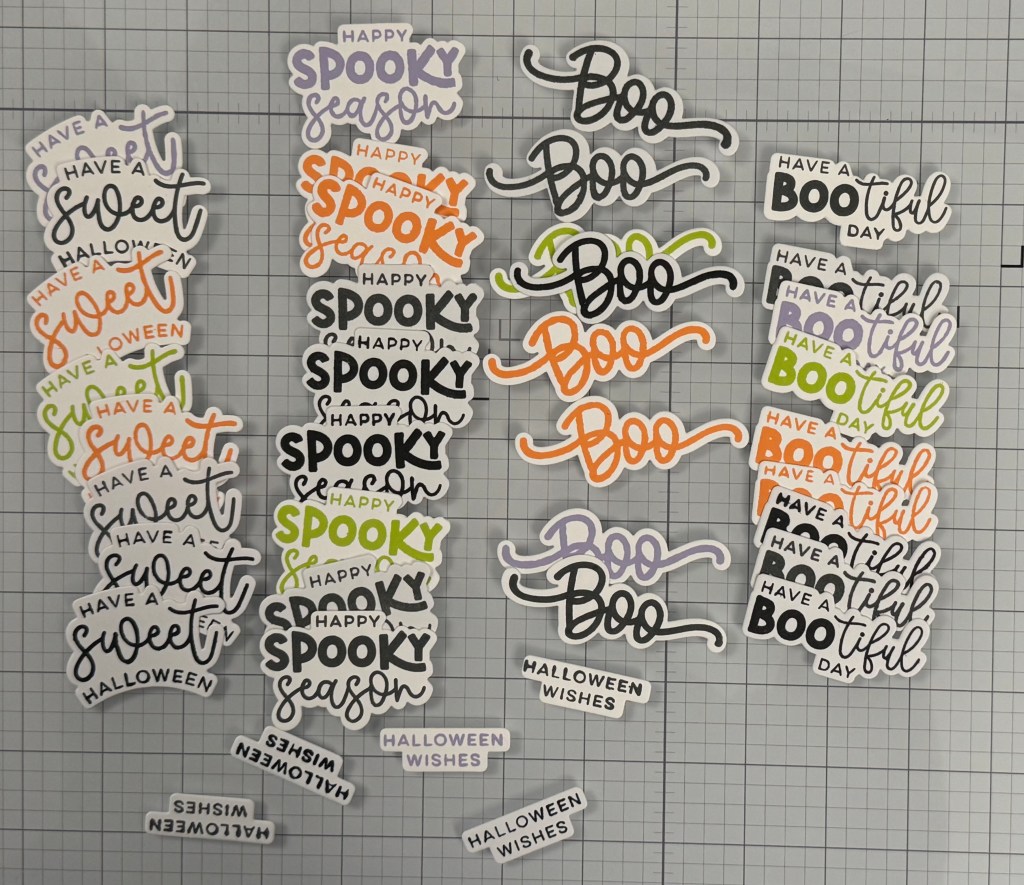 HAVE A
sweet
HAVE A
sweet
HALLOWEEN
HAVE A
sweet
LOWEEN
HAVE A
sweet
HAVE A
sweet
HAVE A
sweet
HAVE A
sweet
HAVE A
sweet
HALLOWEEN
HAPPY
SPOOKY
season
HAPPY
SPOOKY
HAPPY
SPOOKY
season
HAPPY
SPOOKY
HAPPY
SPOOKY
season
HAPPY
SPOOKY
season
HAPPY
SPOOKY
season
HAPPY
SPOOKY
HAPPY
SPOOKY
season
Boo
Boo
Boo
Boo
Boo
Boo
Boo
HAVE A
BOOtiful
DAY
HAVE A
BOOtiful
HAVE A
BOOtiful
HAVE A
BOOtiful
DAY
HAVE A
BOOtiful
HAVE A
BOOtiful
HAVE A
BOOtiful
HAVE A
BOOtiful
HAVE A
BOOtiful
DAY
HALLOWEEN
WISHES
HALLOWEEN
WISHES
HALLOWEEN
WISHES
HALLOWEEN
WISHES
HALLOWEEN
WISHES